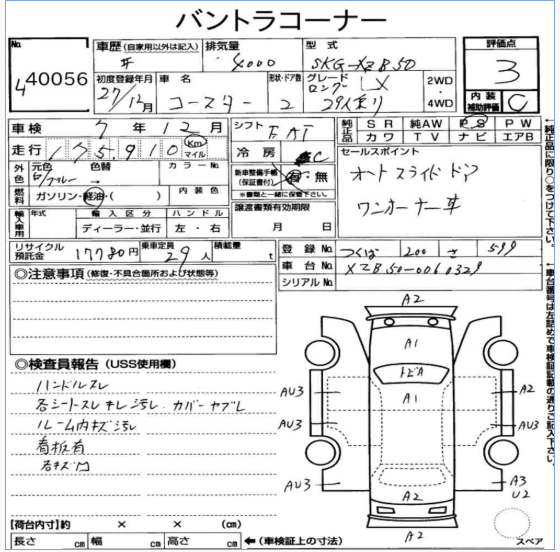 バントラコーナー
No. 40056
車歴 (自家用以外は記入) 排気量 4000 型式 SKG-XZB50 評価点 3
初度登録年月 27/12月 車名 コースター 形状・ドア数 2 グレード ロング LX 29人乗り 2WD・4WD 内装補助評価 C
車検 7年12月 シフト FAT 純正品 SR 純AW PS PW カワ TV ナビ エアB
走行 175,910 Km マイル 冷房 AC セールスポイント
外色 元色 白/ブルー 色替 → カラーNo. 新車整備手帳(保証書付) 有・無 ※書類と一緒に保管下さい。 オートスライドドア
燃料 ガソリン・軽油・( ) 内装色 ワンオーナー車
輸入車用 年式 輸入区分 ハンドル 譲渡書類有効期限
ディーラー・並行 左・右 月 日
リサイクル預託金 17780円 乗車定員 29人 積載量 t 登録No. つくば 200 さ 599
◎注意事項 (修復・不具合箇所および状態等) 車台No. XZB50-0060329
シリアルNo.
◎検査員報告 (USS使用欄)
ハンドルスレ
各シートスレ キレ 汚レ カバーヤブレ
ルーム内キズ汚レ
看板有
右キズ凹
【荷台内寸】約 × × (cm)
長さ cm 幅 cm 高さ cm ←(車検証上の寸法)
A2
A1
トビA
AU3 A1 A2
AU3
AU3 A2 A3 U2
A2
スペア
←純正品に限り○をつけて下さい。
←車台番号は左詰めで車検証記載の通りご記入下さい。